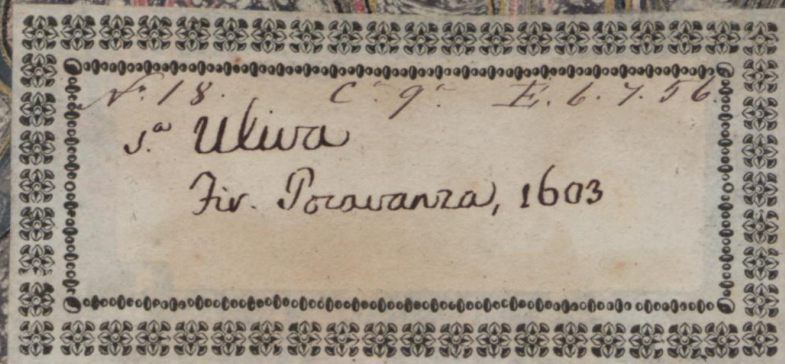 N.° 18. C.ª 9.ª E. 6. 7. 56.
S.ª Uliva
Fir. Pocavanza, 1603